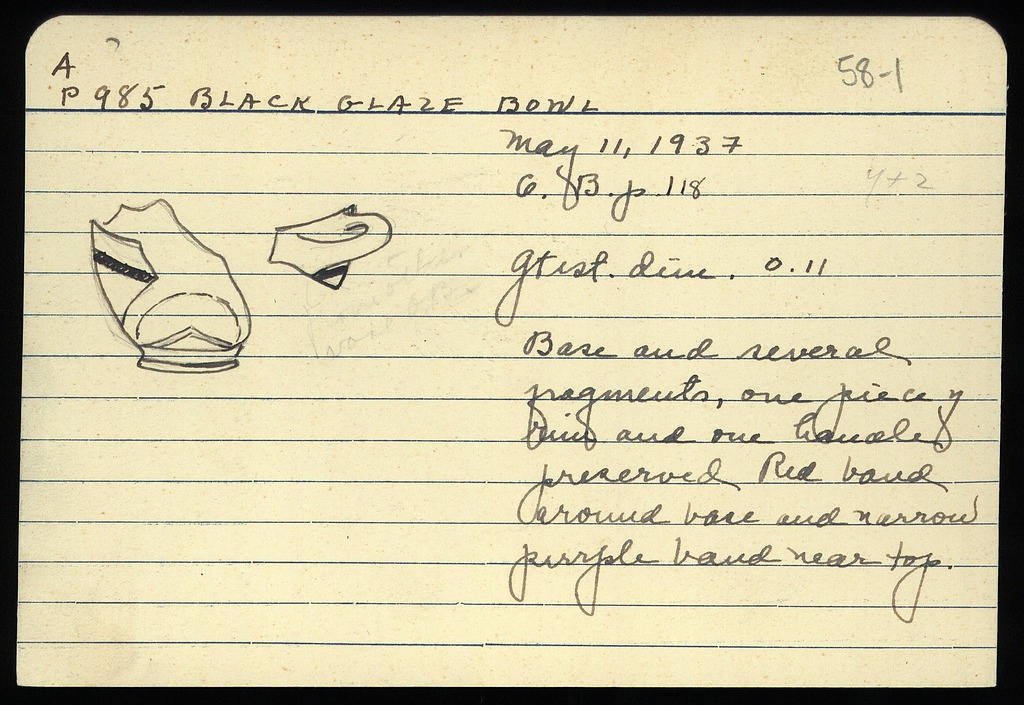 A
58-1
P 985 BLACK GLAZE BOWL
May 11, 1937
G. B. p. 118
4+2
Gtist. dim. 0.11
Base and several
fragments, one piece of
rim and one handle
preserved Red band
around base and narrow
purple band near top.